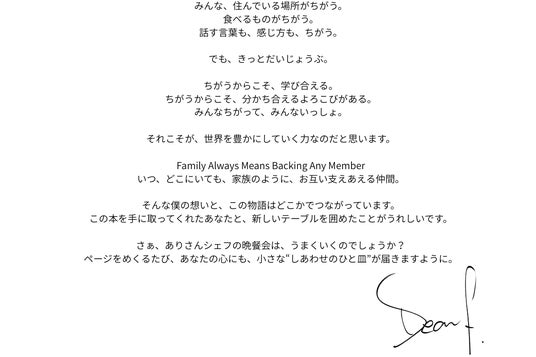 みんな、住んでいる場所がちがう。
食べるものがちがう。
話す言葉も、感じ方も、ちがう。
でも、きっとだいじょうぶ。
ちがうからこそ、学び合える。
ちがうからこそ、分かち合えるよろこびがある。
みんなちがって、みんないっしょ。
それこそが、世界を豊かにしていく力なのだと思います。
Family Always Means Backing Any Member
いつ、どこにいても、家族のように、お互い支えあえる仲間。
そんな僕の想いと、この物語はどこかでつながっています。
この本を手に取ってくれたあなたと、新しいテーブルを囲めたことがうれしいです。
さぁ、ありさんシェフの晩餐会は、うまくいくのでしょうか？
ページをめくるたび、あなたの心にも、小さな“しあわせのひと皿”が届きますように。
Dean f.